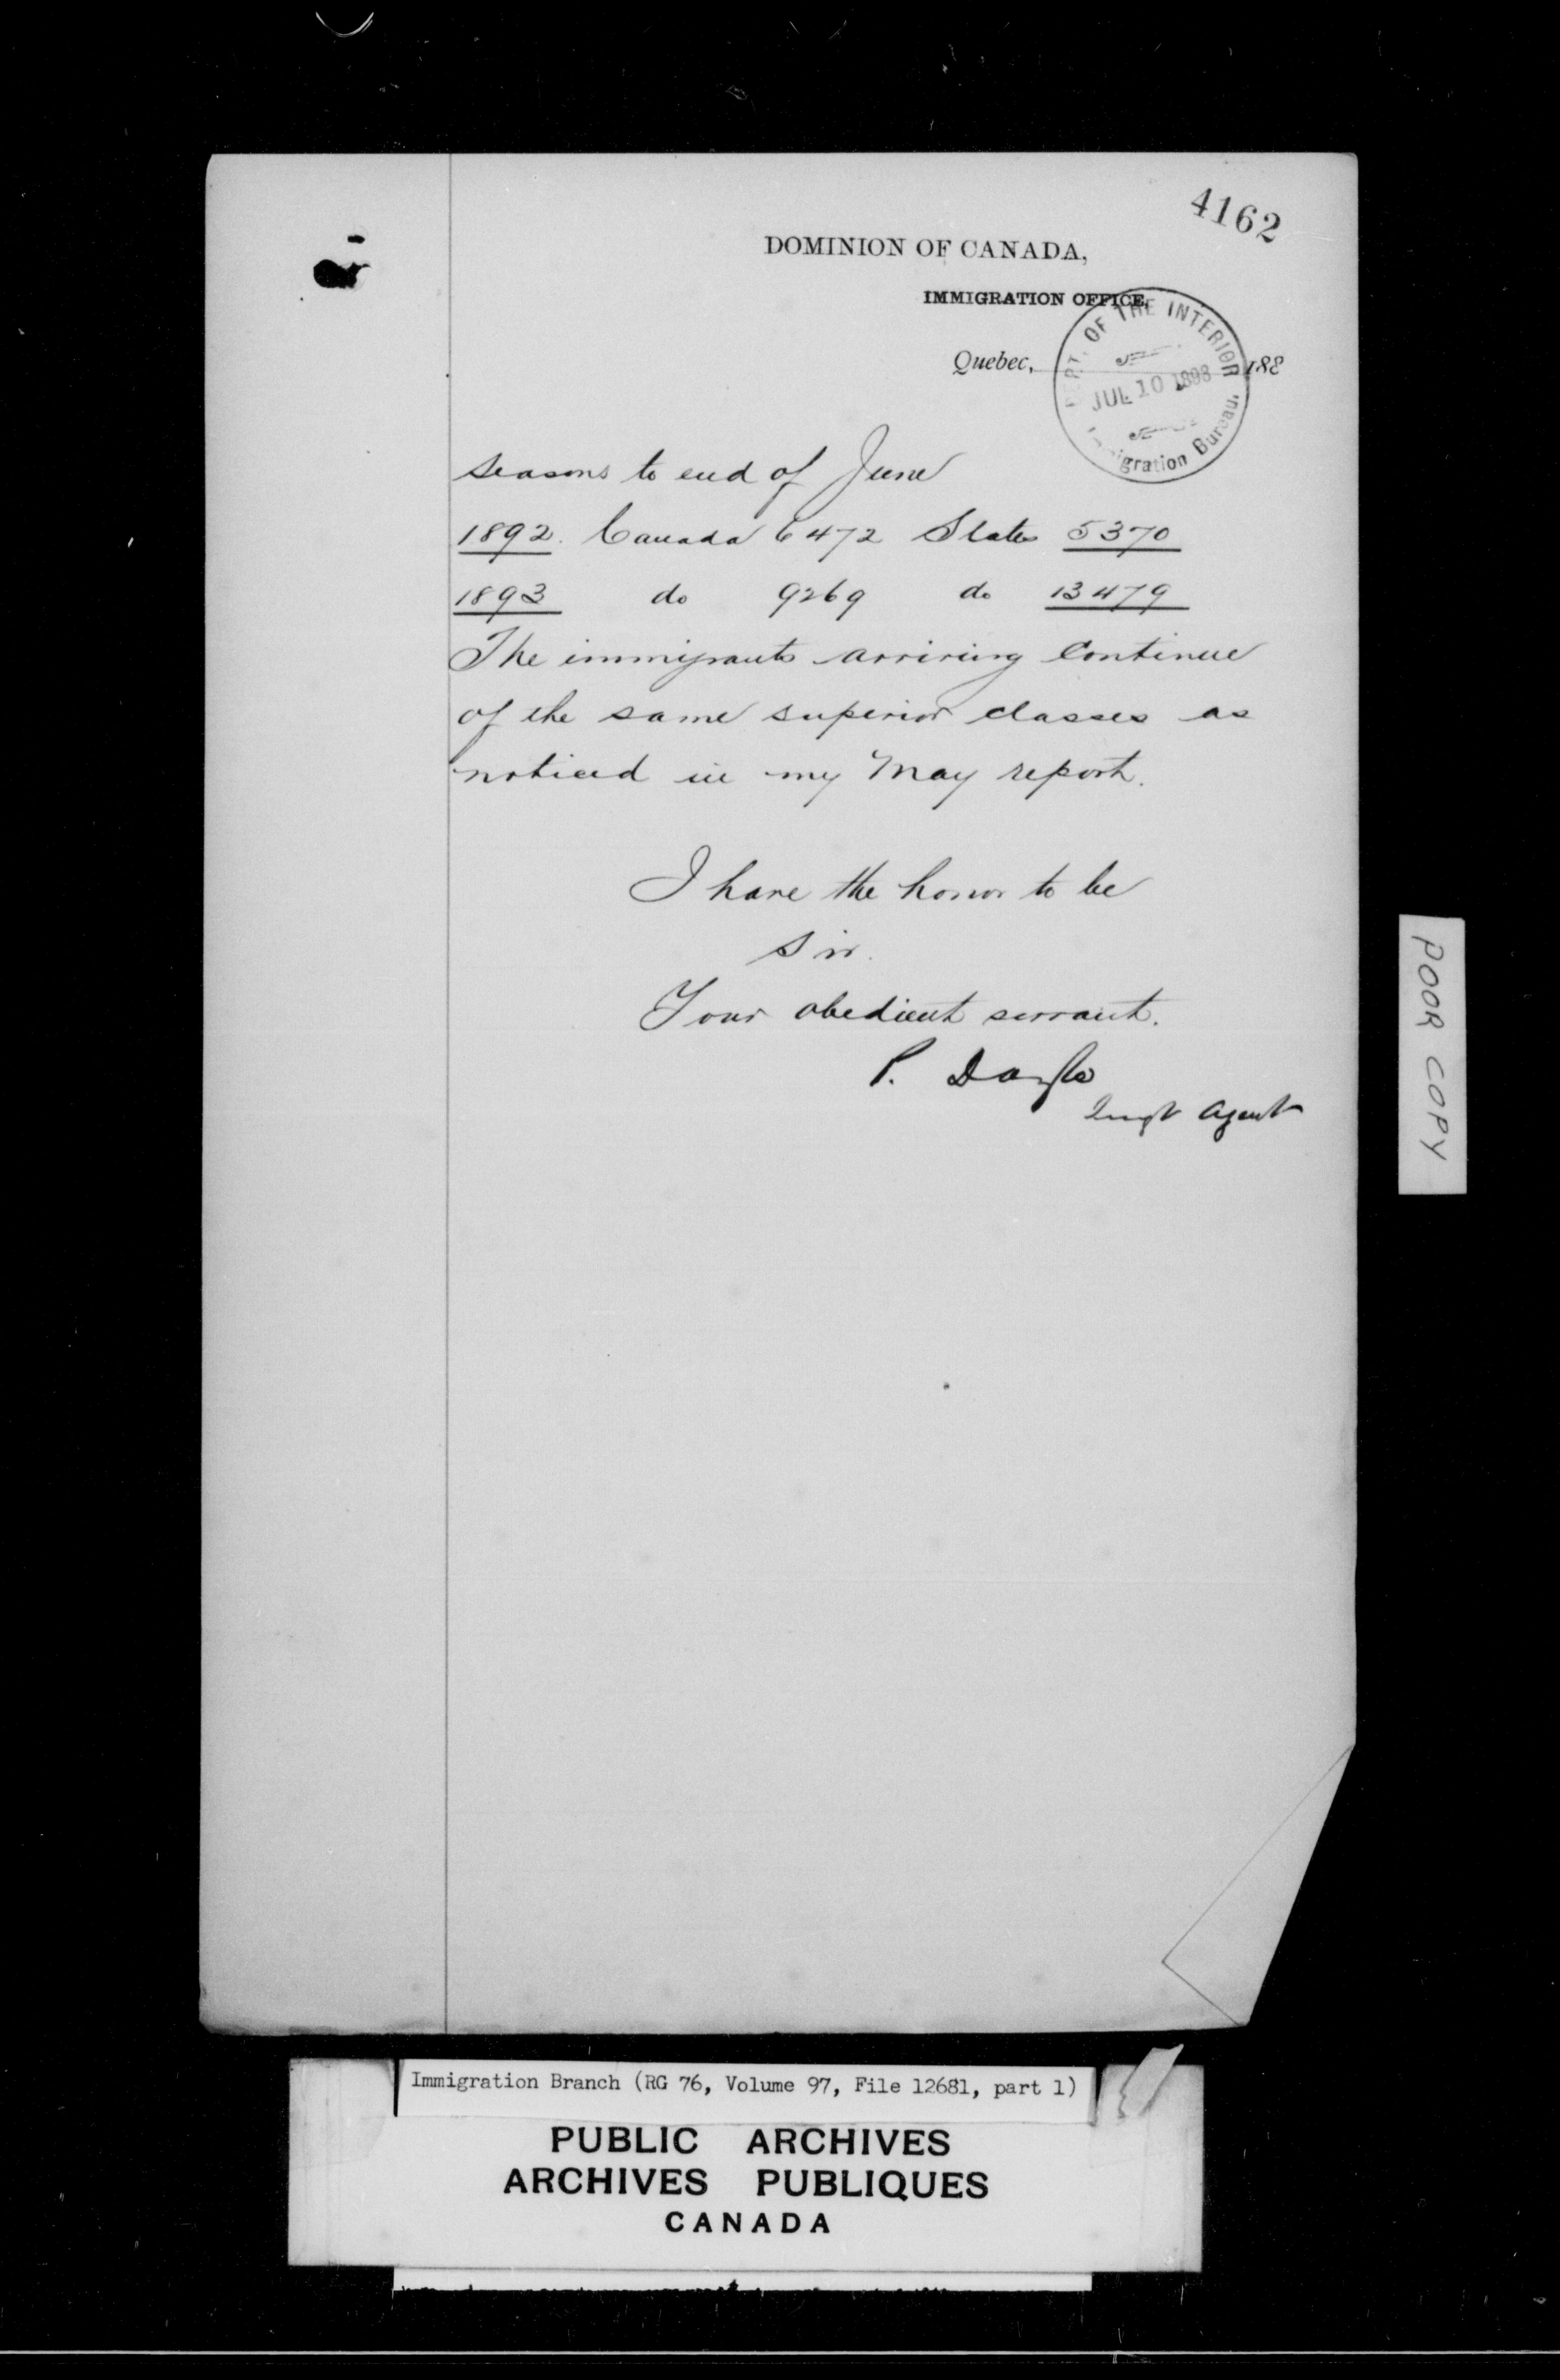 4162
DOMINION OF CANADA,
IMMIGRATION OFFICE,
Quebec, 188
DEPT. OF THE INTERIOR
JUL 10 1893
Immigration Bureau.
seasons to end of June
1892. Canada 6472 States 5370
1893 do 9269 do 13479
The immigrants arriving Continue
of the same superior classes as
noticed in my May report.
I have the honor to be
Sir.
Your obedient servant.
P. Doyle
Imgt Agent
POOR COPY
Immigration Branch (RG 76, Volume 97, File 12681, part 1)
PUBLIC ARCHIVES
ARCHIVES PUBLIQUES
CANADA